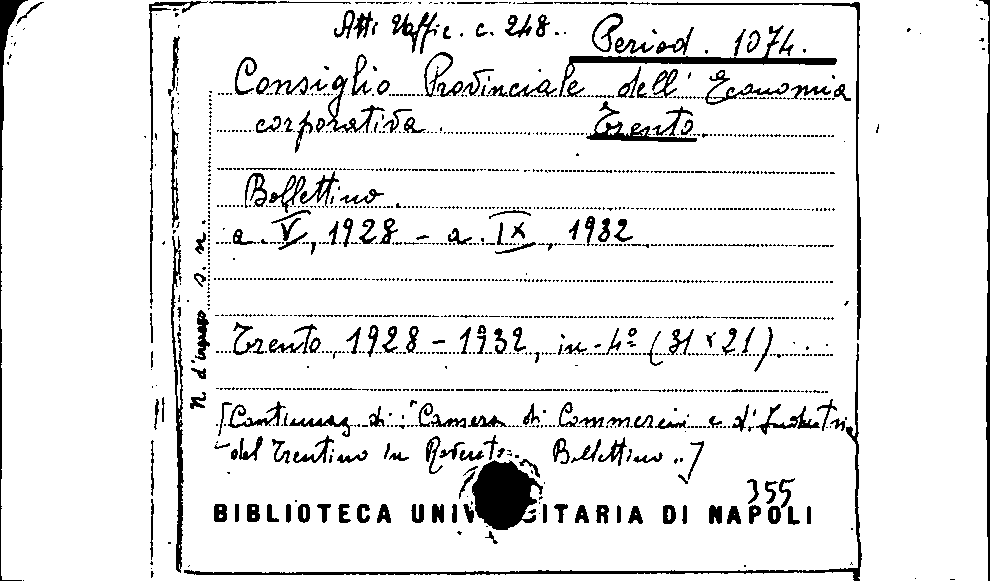 Atti Uffic. c. 248..
Period. 1074.
Consiglio Provinciale dell' Economia
corporativa. Trento.
Bollettino.
a. V, 1928 - a. IX, 1932
N. d'ingresso s. n.
Trento, 1928 - 1932, in-4º (31 x 21).
[Continuaz di: "Camera di Commercio e d'Industria
del Trentino in Rovereto. Bollettino..]
355
BIBLIOTECA UNIVERSITARIA DI NAPOLI